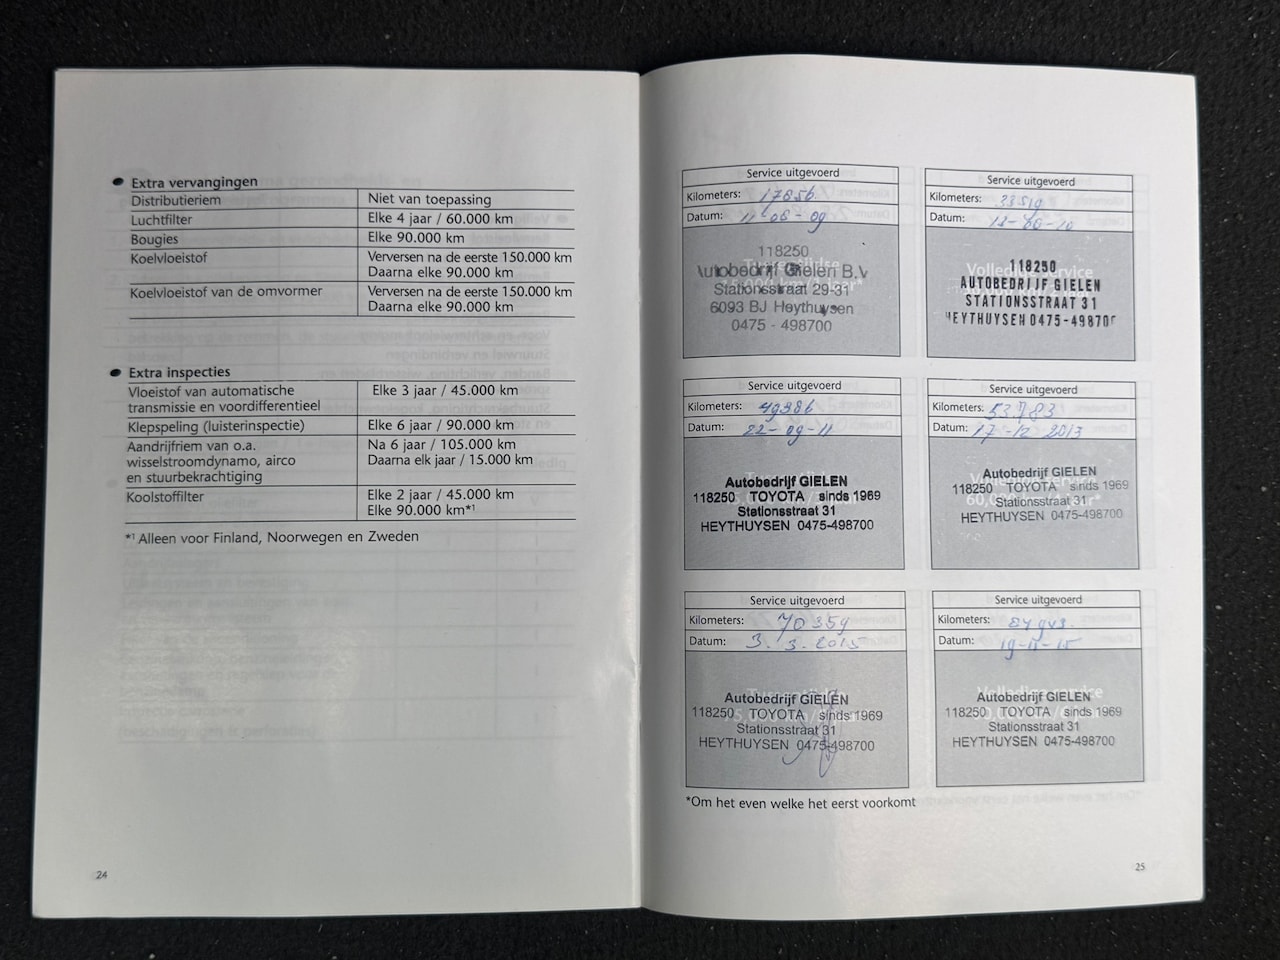 Extra vervangingen
Distributieriem Niet van toepassing
Luchtfilter Elke 4 jaar / 60.000 km
Bougies Elke 90.000 km
Koelvloeistof Verversen na de eerste 150.000 km
Daarna elke 90.000 km
Koelvloeistof van de omvormer Verversen na de eerste 150.000 km
Daarna elke 90.000 km
Extra inspecties
Vloeistof van automatische Elke 3 jaar / 45.000 km
transmissie en voordifferentieel
Klepspeling (luisterinspectie) Elke 6 jaar / 90.000 km
Aandrijfriem van o.a. Na 6 jaar / 105.000 km
wisselstroomdynamo, airco Daarna elk jaar / 15.000 km
en stuurbekrachtiging
Koolstoffilter Elke 2 jaar / 45.000 km
Elke 90.000 km*1
*1 Alleen voor Finland, Noorwegen en Zweden
24
Service uitgevoerd
Kilometers: 17856
Datum: 11-06-09
118250
Autobedrijf Gielen B.V
Stationsstraat 29-31
6093 BJ Heythuysen
0475 - 498700
Service uitgevoerd
Kilometers: 33519
Datum:
Volledige service
118250
AUTOBEDRIJF GIELEN
STATIONSSTRAAT 31
HEYTHUYSEN 0475-498700
Service uitgevoerd
Kilometers: 49386
Datum: 22-09-11
Autobedrijf GIELEN
118250 TOYOTA sinds 1969
Stationsstraat 31
HEYTHUYSEN 0475-498700
Service uitgevoerd
Kilometers: 53.783
Datum: 17-12 2013
Autobedrijf GIELEN
118250 TOYOTA sinds 1969
Stationsstraat 31
HEYTHUYSEN 0475-498700
Service uitgevoerd
Kilometers: 70359
Datum: 3. 3. 2015
Autobedrijf GIELEN
118250 TOYOTA sinds 1969
Stationsstraat 31
HEYTHUYSEN 0475-498700
Service uitgevoerd
Kilometers:
Datum: 19-11-15
Volledige service
Autobedrijf GIELEN
118250 TOYOTA sinds 1969
Stationsstraat 31
HEYTHUYSEN 0475-498700
*Om het even welke het eerst voorkomt
25